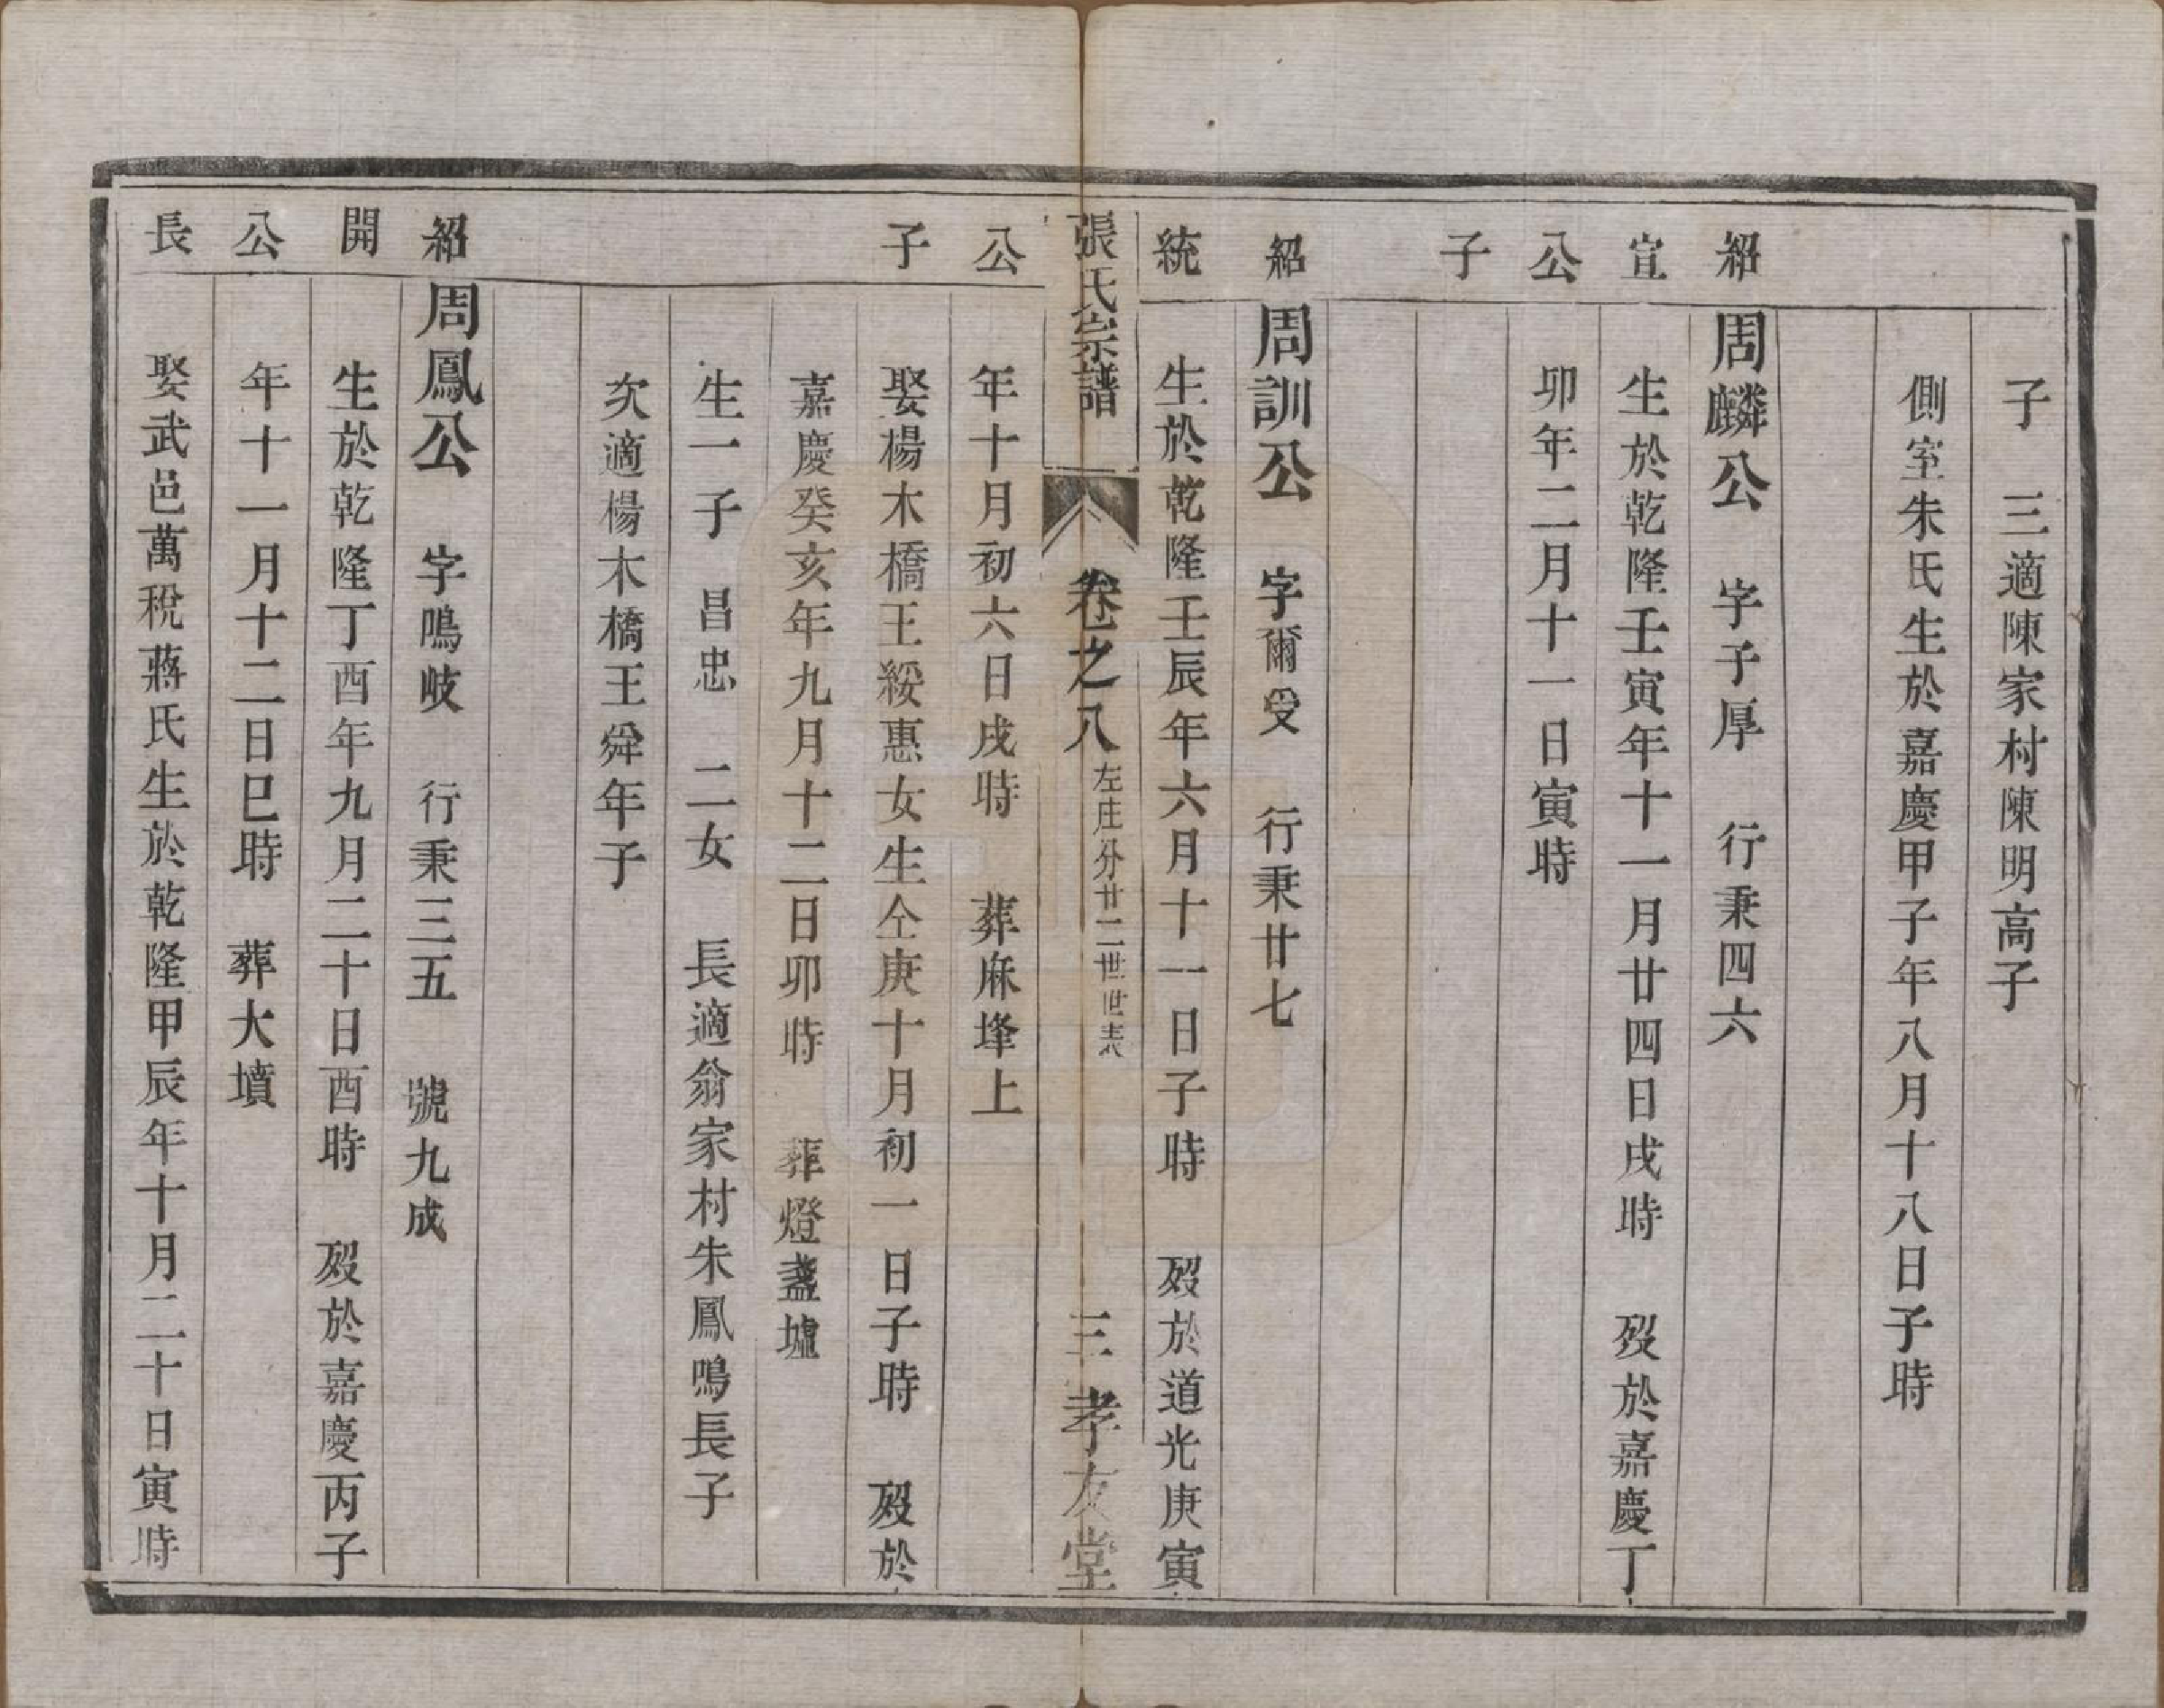 子　三適陳家村陳明高子
側室朱氏生於嘉慶甲子年八月十八日子時
紹　周麟公　字子厚　行秉四六
宣　生於乾隆壬寅年十一月廿四日戌時　歿於嘉慶丁
公　卯年二月十一日寅時
子
紹　周訓公　字爾受　行秉廿七
統　生於乾隆壬辰年六月十一日子時　歿於道光庚寅
張氏宗譜　卷之八　左庄分廿二世世表　三　孝友堂
公　年十月初六日戌時　葬麻埄上
子　娶楊木橋王綏惠女生仝庚十月初一日子時　歿於
嘉慶癸亥年九月十二日卯時　葬燈盞墟
生一子　昌忠　二女　長適翁家村朱鳳鳴長子
次適楊木橋王舜年子
紹　周鳳公　字鳴岐　行秉三五　號九成
開　生於乾隆丁酉年九月二十日酉時　歿於嘉慶丙子
公　年十一月十二日巳時　葬大墳
長　娶武邑萬稅蔣氏生於乾隆甲辰年十月二十日寅時